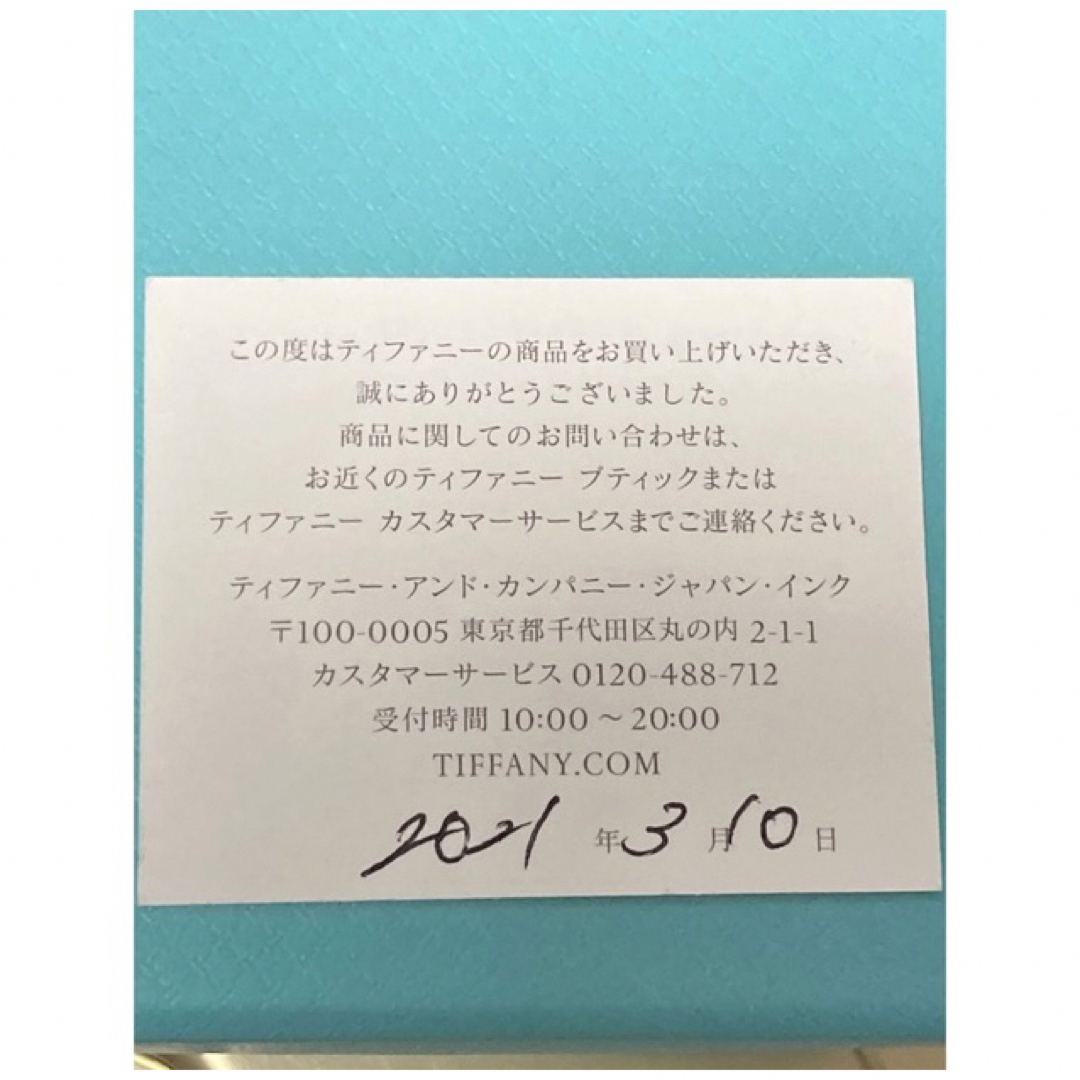 この度はティファニーの商品をお買い上げいただき、
誠にありがとうございました。
商品に関してのお問い合わせは、
お近くのティファニー ブティックまたは
ティファニー カスタマーサービスまでご連絡ください。
ティファニー・アンド・カンパニー・ジャパン・インク
〒100-0005 東京都千代田区丸の内 2-1-1
カスタマーサービス 0120-488-712
受付時間 10:00 〜 20:00
TIFFANY.COM
2021 年 3 月 10 日